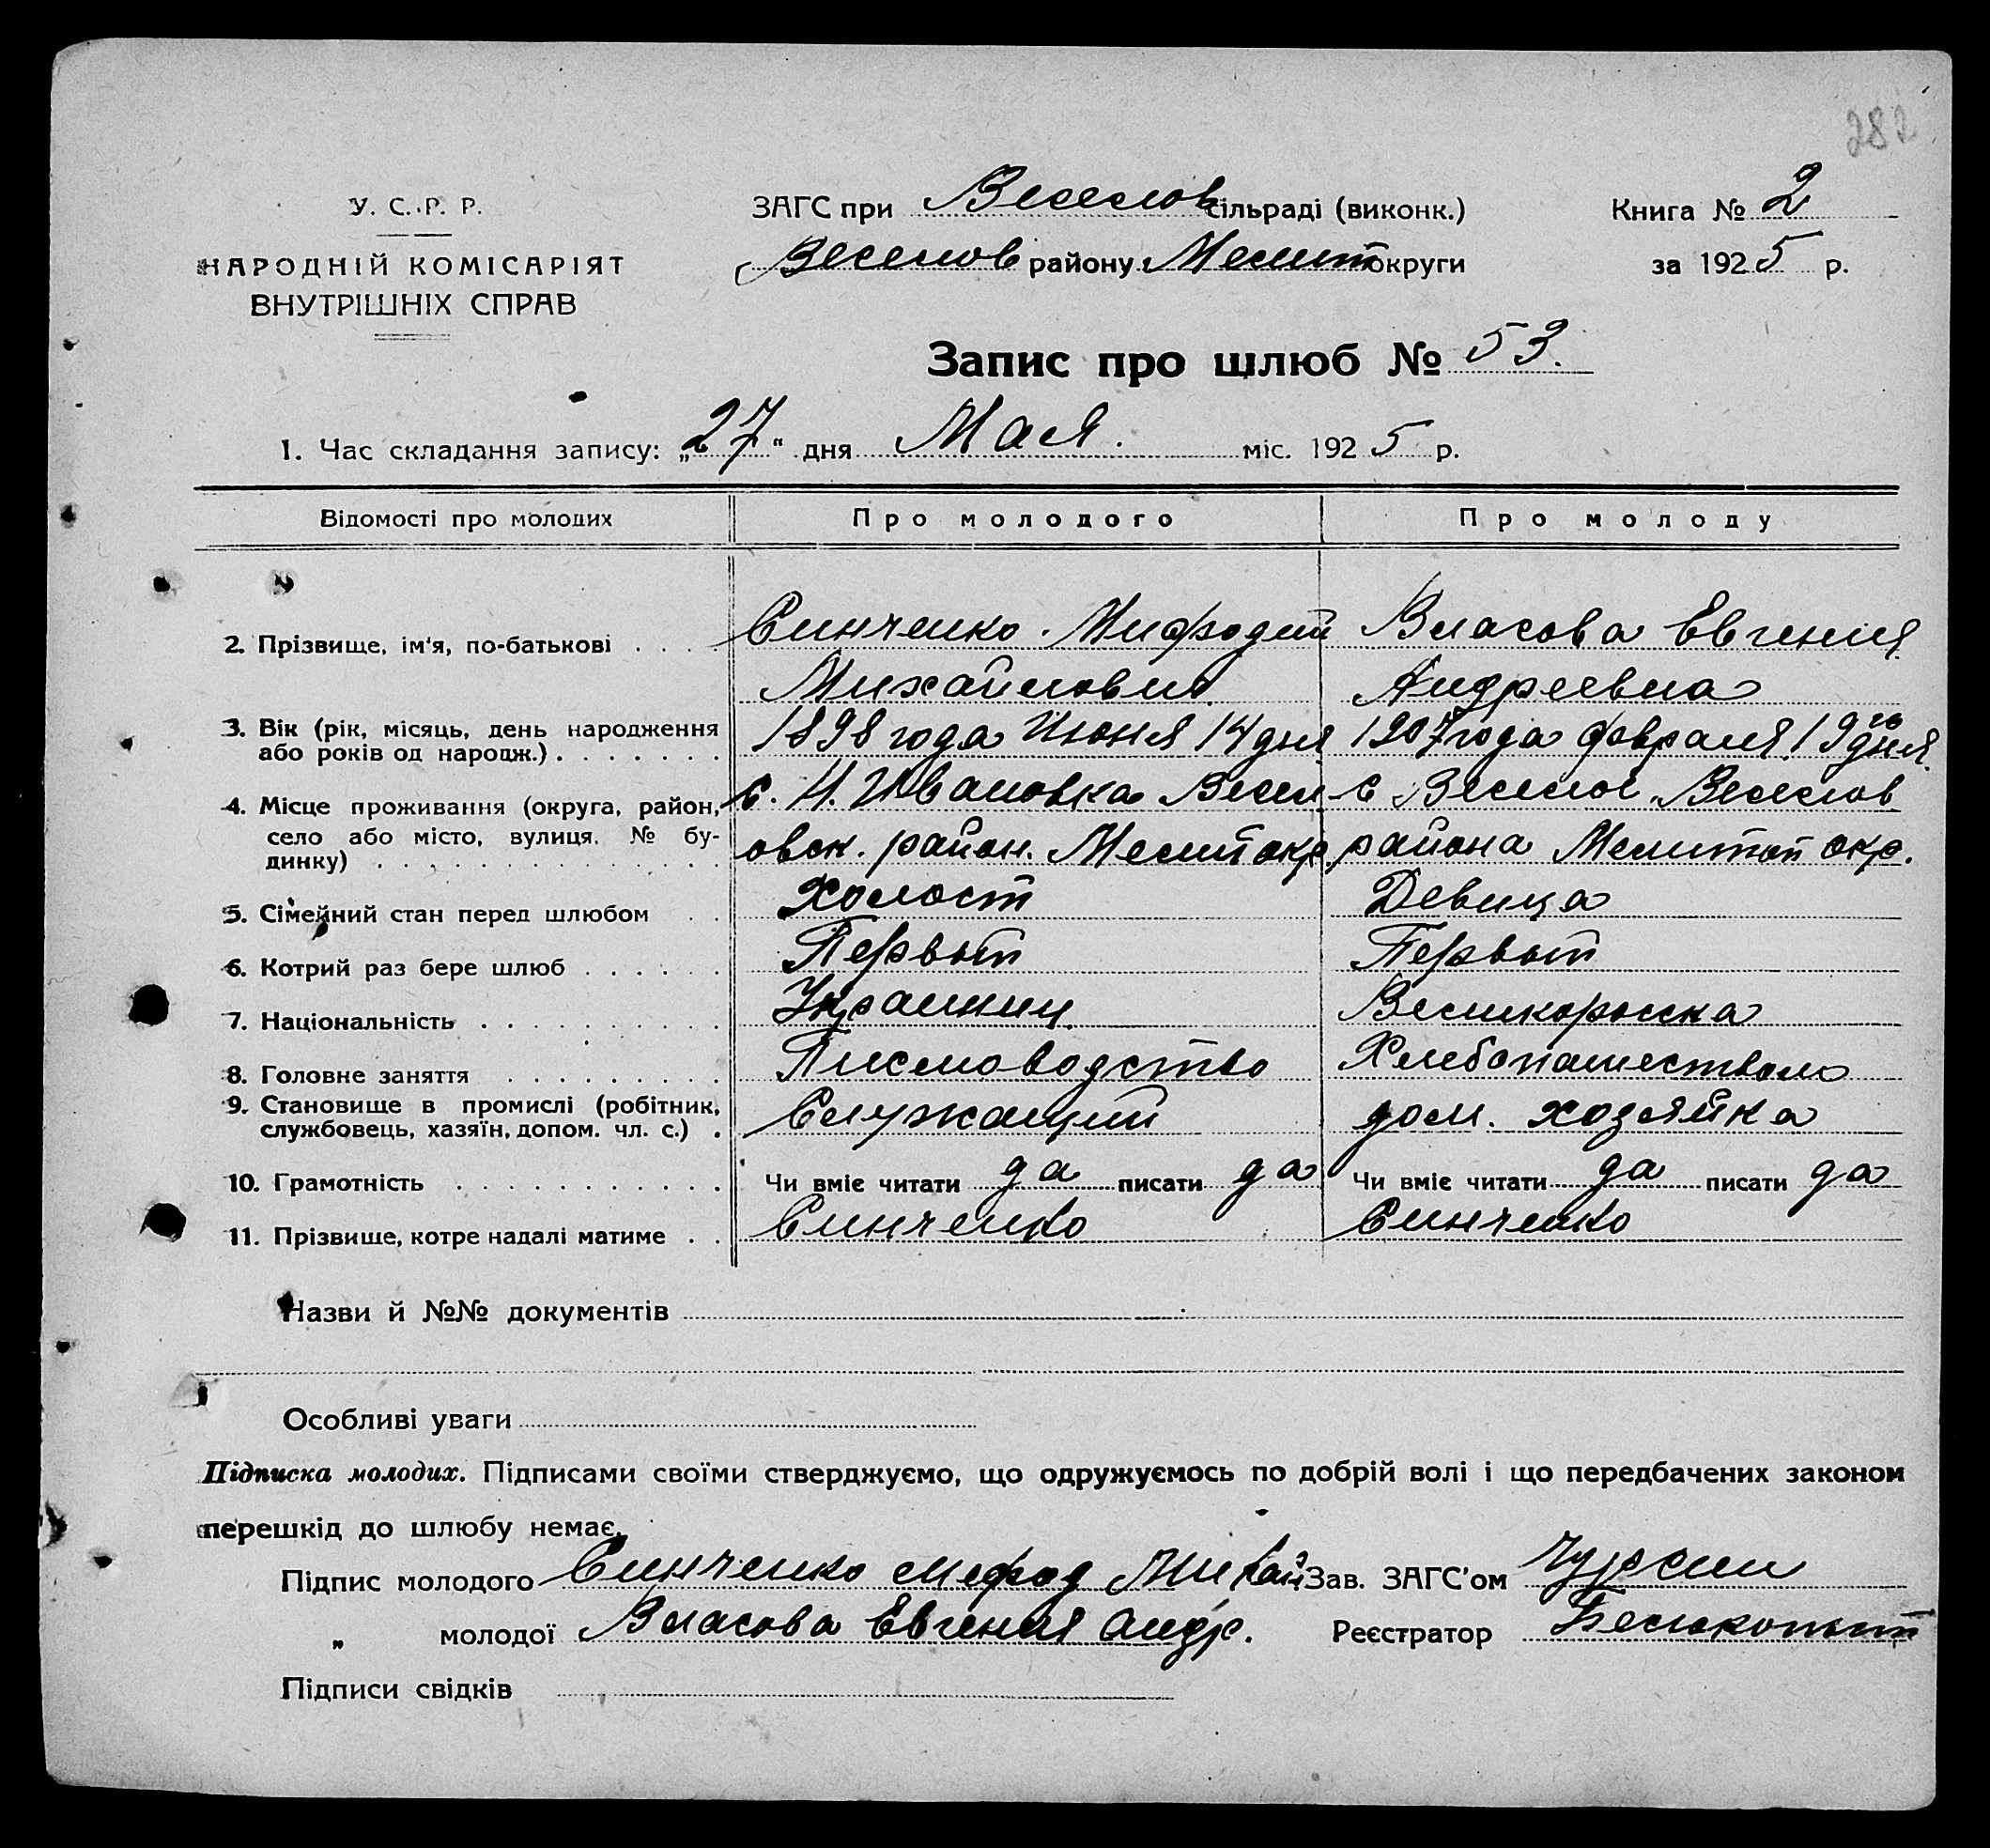 282
У. С. Р. Р.
НАРОДНІЙ КОМІСАРІЯТ
ВНУТРІШНІХ СПРАВ
ЗАГС при Веселов сільраді (виконк.)
Веселов району Мелит округи
Книга № 2
за 1925 р.
Запис про шлюб № 53.
1. Час складання запису: „27" дня Мая. міс. 1925 р.
Відомості про молодих Про молодого Про молоду
2. Прізвище, ім'я, по-батькові . . . . Синченко Мифодий Власова Евгения
Михайлович Андреевна
3. Вік (рік, місяць, день народження 1898 года Июня 14 дня 1907 года февраля 19го дня
або років од народж.) . . . . . . .
4. Місце проживання (округа, район, с. Н. Ивановка Весел с Веселое Веселов
село або місто, вулиця. № бу- овск. район. Мелит окр. района Мелитоп окр.
динку) . . . . . . . . . . . . .
5. Сімейний стан перед шлюбом . . Холост Девица
6. Котрий раз бере шлюб . . . . . . Первый Первый
7. Національність . . . . . . . . . . Украинец Великоросска
8. Головне заняття . . . . . . . . . Писмоводство Хлебопашеством
9. Становище в промислі (робітник, Служащий дом. хозяйка
службовець, хазяїн, допом. чл. с.) .
10. Грамотність . . . . . . . . . . . Чи вміє читати да писати да Чи вміє читати да писати да
11. Прізвище, котре надалі матиме . . Синченко Синченко
Назви й №№ документів
Особливі уваги
Підписка молодих. Підписами своїми стверджуємо, що одружуємось по добрій волі і що передбачених законом
перешкід до шлюбу немає.
Підпис молодого Синченко Мефод Михай Зав. ЗАГС'ом Чурсин
„ молодої Власова Евгения Андр. Реєстратор Белокопыт
Підписи свідків